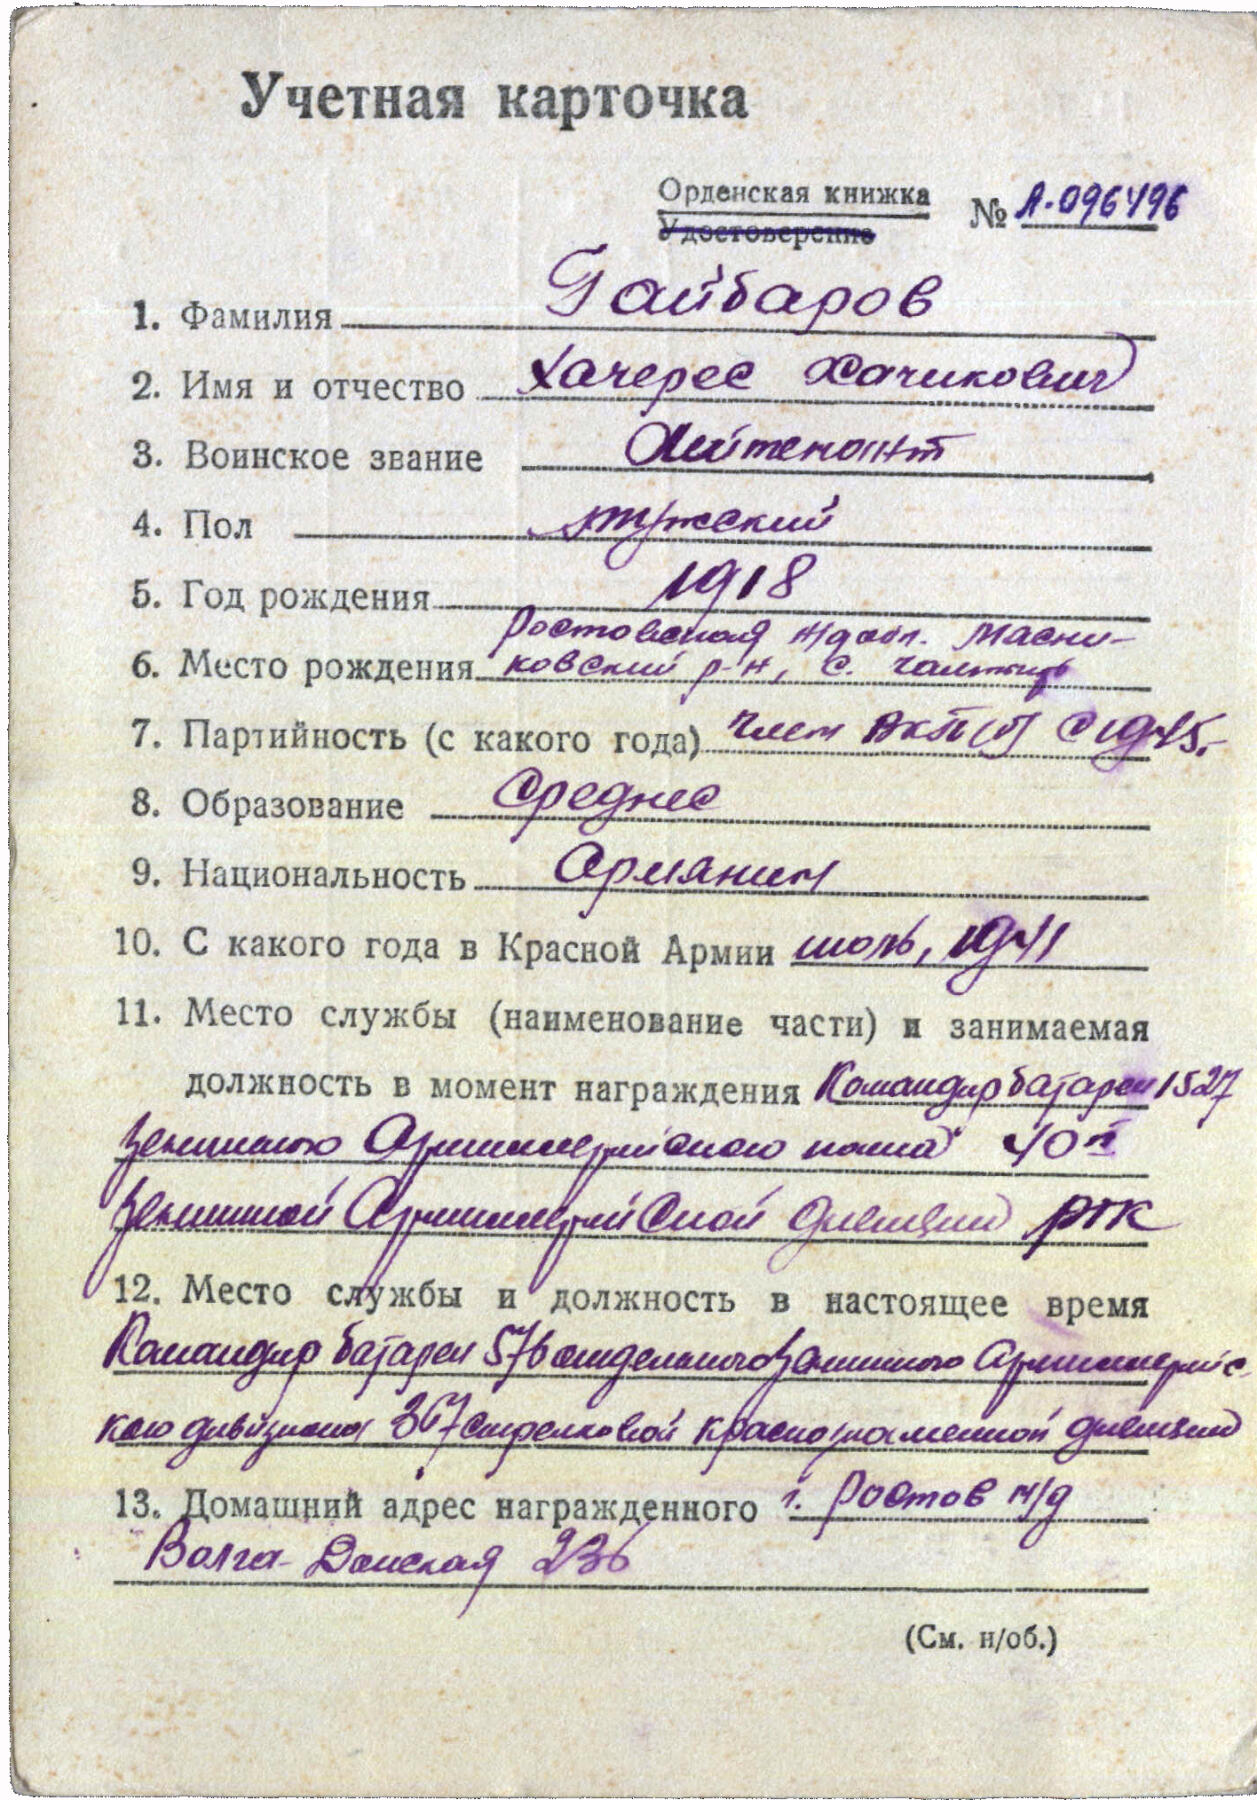 Учетная карточка
Орденская книжка
Удостоверение
№ А-096496
1. Фамилия Гайбаров
2. Имя и отчество Хачерес Хачикович
3. Воинское звание Лейтенант
4. Пол мужской
5. Год рождения 1918
Ростовская н/д обл. Мясни-
6. Место рождения ковский р-н, с. Чалтырь
7. Партийность (с какого года) член ВКП(б) с 1945.
8. Образование Среднее
9. Национальность Армянин
10. С какого года в Красной Армии июль, 1941
11. Место службы (наименование части) и занимаемая
должность в момент награждения Командир батареи 1527
Зенитного Артиллерийского полка 40й
Зенитной Артиллерийской дивизии РГК
12. Место службы и должность в настоящее время
Командир батареи 576 отдельного Зенитного Артиллерийс-
кого дивизиона 367 стрелковой краснознаменной дивизии
13. Домашний адрес награжденного г. Ростов н/д
Волга-Донская 236
(См. н/об.)